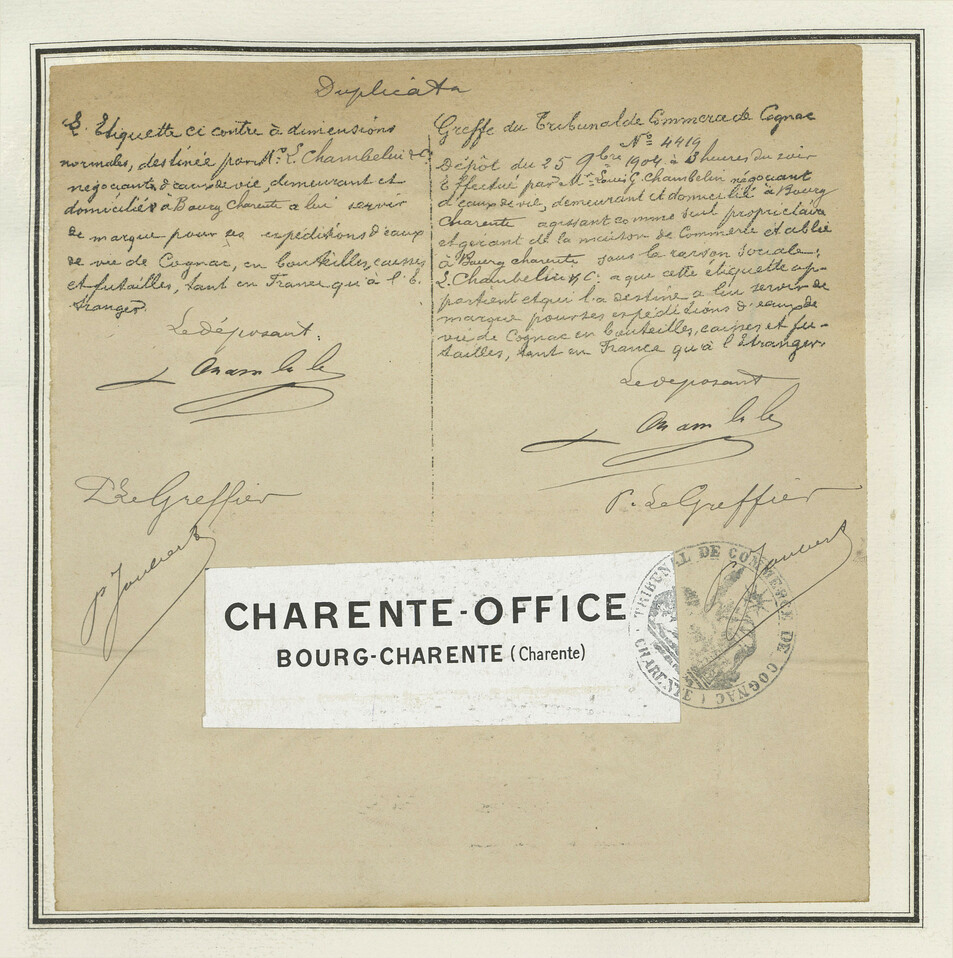 Duplicata
L'Etiquette ci contre à dimensions
normales, destinée par Mr. L. Chambelin & C.
négociants d'eaux de vie, demeurant et
domiciliés à Bourg Charente a lui servir
de marque pour ses expéditions d'eaux
de vie de Cognac, en bouteilles, caisses
et futailles, tant en France qu'à l'E-
tranger.
Le déposant.
Le Greffier
P. Joubert
Greffe du Tribunal de Commerce de Cognac
No 4419
Dépôt du 25 9bre 1904 à 3 heures du soir
Effectué par Mr. Louis G. Chambelin négociant
d'eaux de vie, demeurant et domicilié à Bourg
Charente agissant comme seul propriétaire
et gérant de la maison de Commerce établie
à Bourg charente sous la raison sociale:
L. Chambelin & C. a que cette étiquette ap-
partient et qu'il a destiné a lui servir de
marque pour ses expéditions d'eaux de
vie de Cognac en bouteilles, caisses et fu-
tailles, tant en France qu'à l'Etranger.
Le déposant
P. Le Greffier
P. Joubert
CHARENTE-OFFICE
BOURG-CHARENTE (Charente)
TRIBUNAL DE COMMERCE DE COGNAC (CHARENTE)